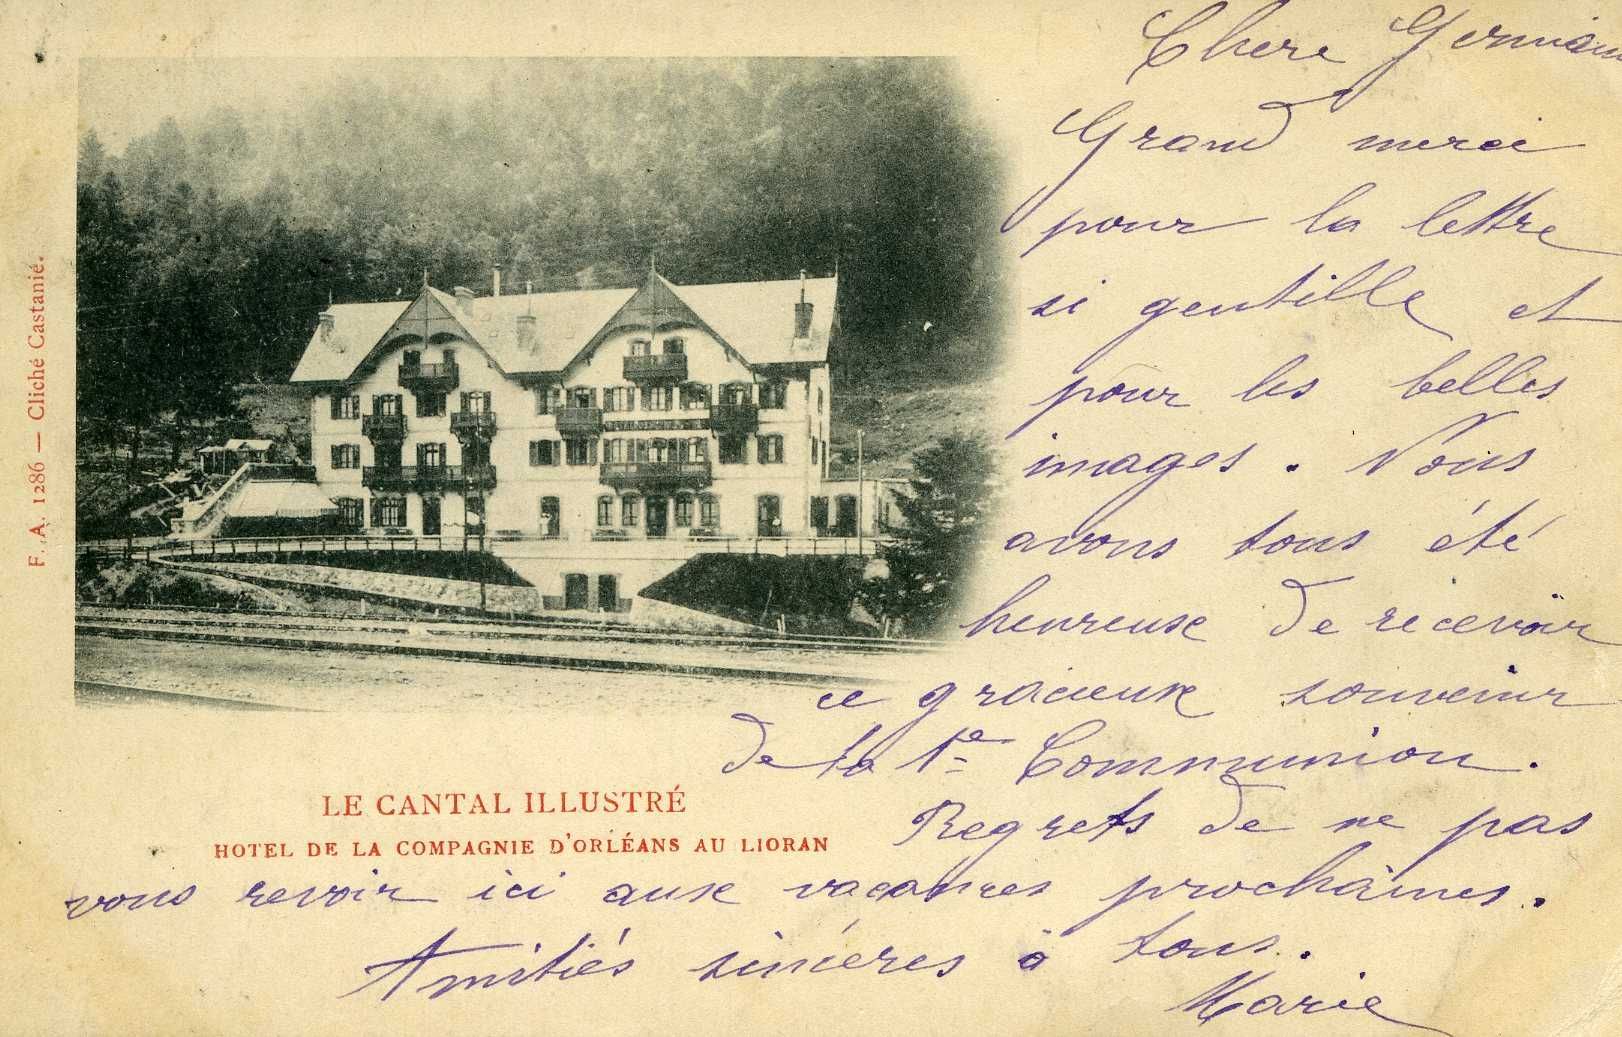 Chere Germaine
Grand merci
pour la lettre
si gentille et
pour les belles
images. Nous
avons tous été
heureuse de recevoir
ce gracieux souvenir
de ta 1e Communion.
Regrets de ne pas
vous revoir ici aux vacances prochaines.
Amitiés sincères à tous.
Marie
LE CANTAL ILLUSTRÉ
HOTEL DE LA COMPAGNIE D'ORLÉANS AU LIORAN
F. A. 1286 — Cliché Castanié.